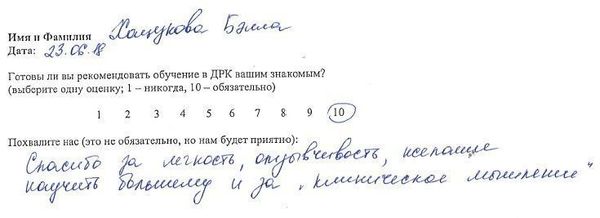 Имя и Фамилия Хацукова Бэлла
Дата: 23.06.18
Готовы ли вы рекомендовать обучение в ДРК вашим знакомым?
(выберите одну оценку; 1 – никогда, 10 – обязательно)
1 2 3 4 5 6 7 8 9 10
Похвалите нас (это не обязательно, но нам будет приятно):
Спасибо за легкость, отзывчивость, желание
научить большему и за „клиническое мышление"